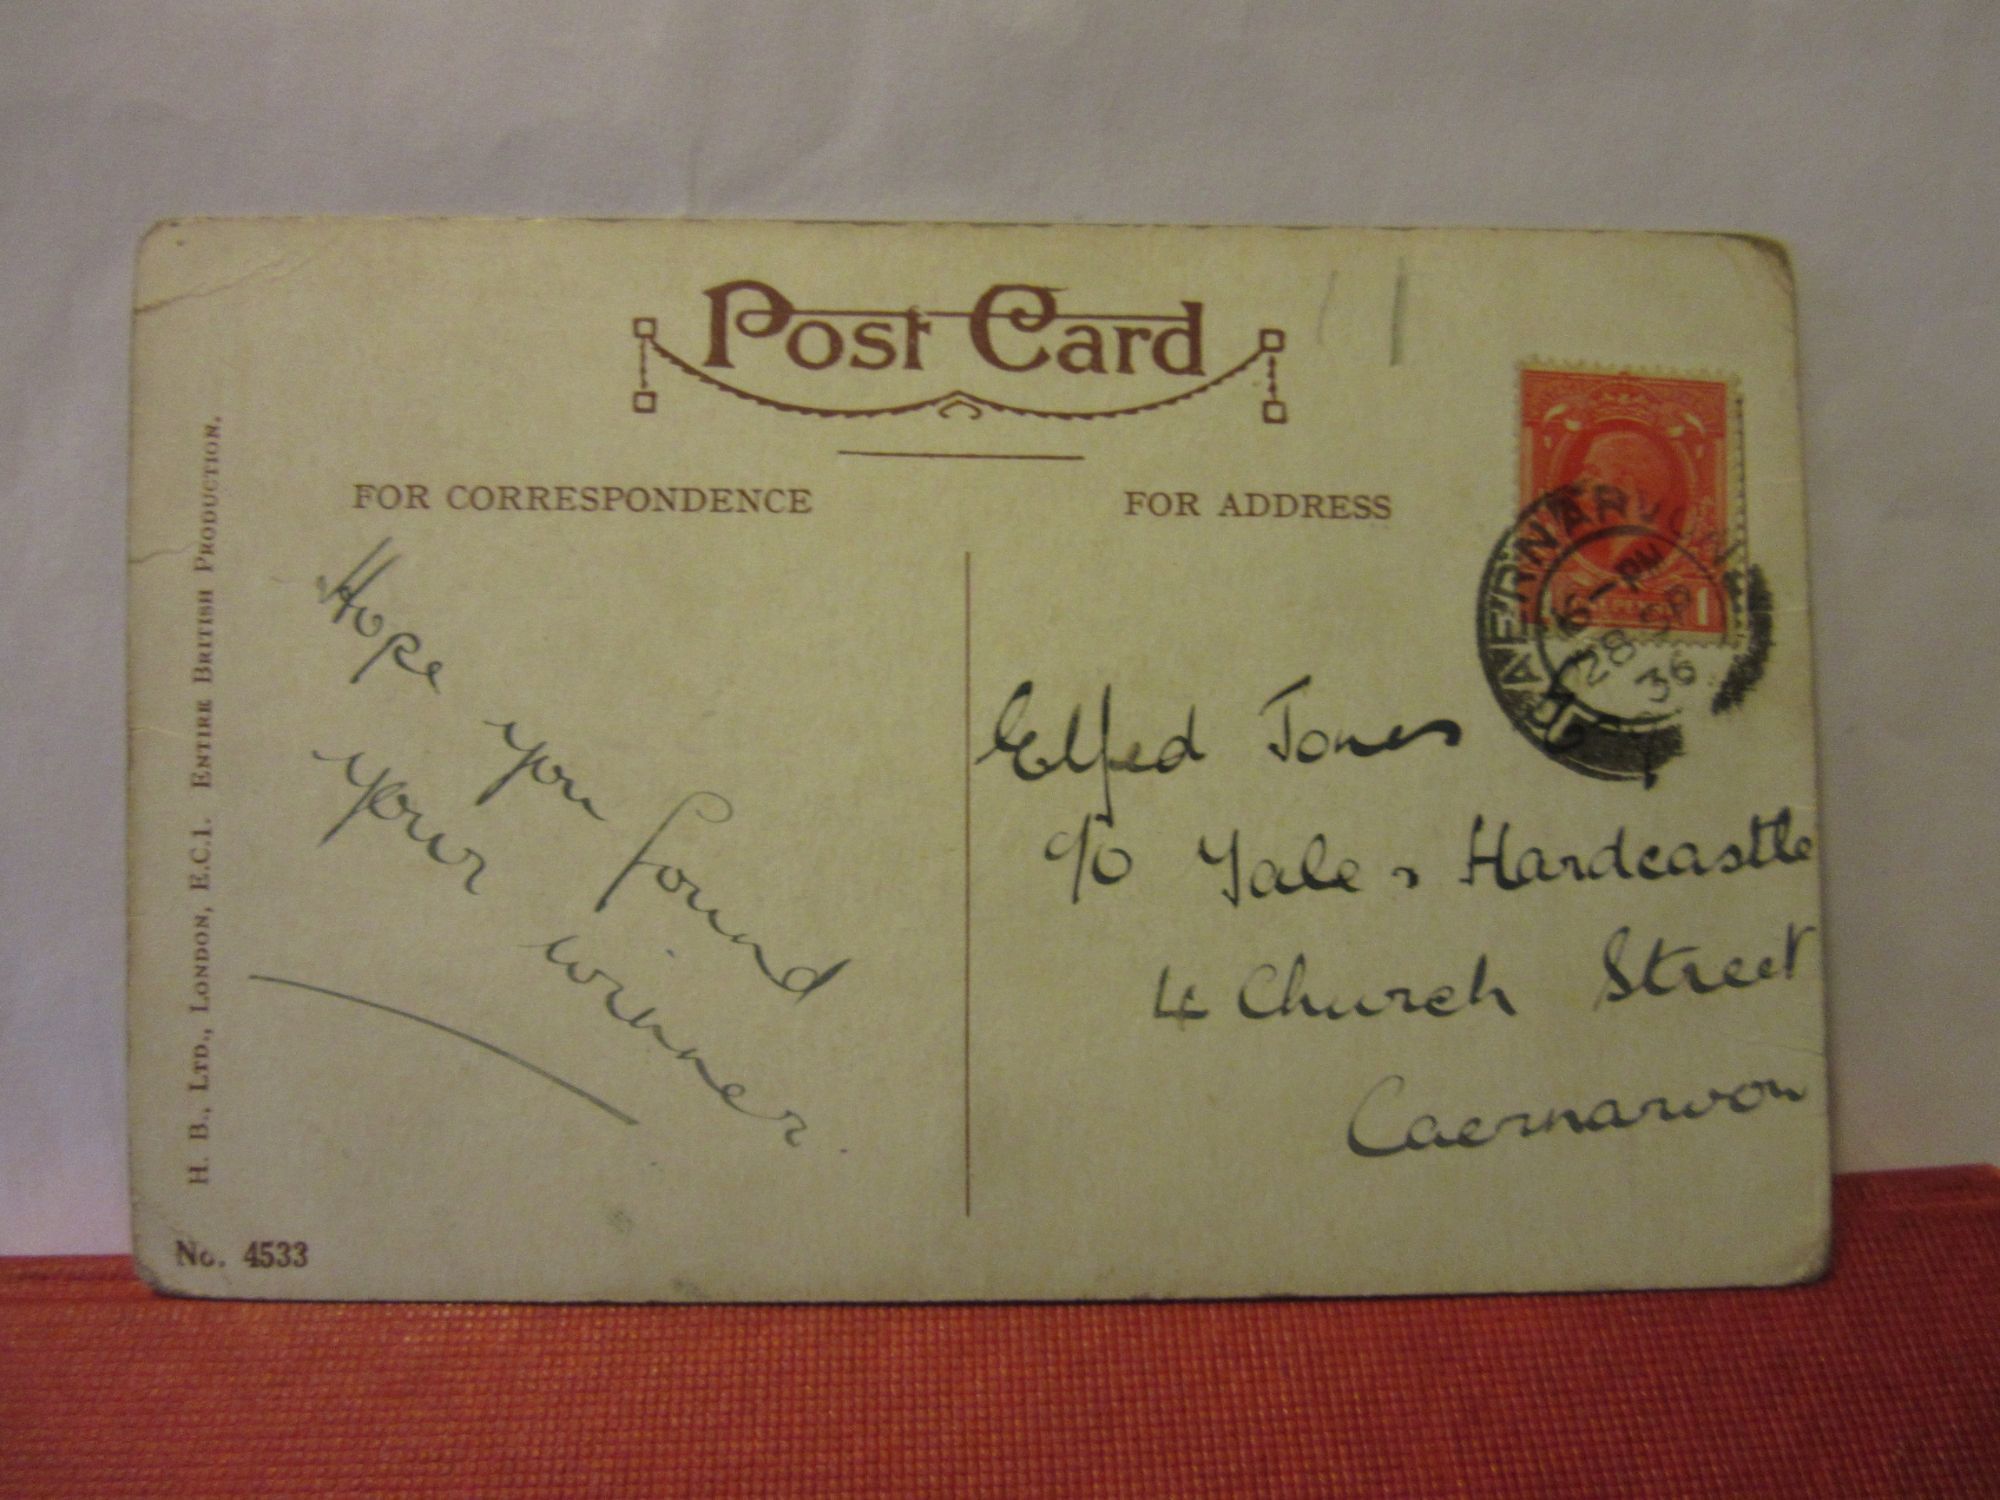 Post Card
FOR CORRESPONDENCE
FOR ADDRESS
Hope you found
your winner.
Elfed Jones
c/o Yale & Hardcastle
4 Church Street
Caernarvon
CAERNARVON
6-PM
28 SP
36
1
H. B., LTD., LONDON, E.C.1. ENTIRE BRITISH PRODUCTION.
No. 4533